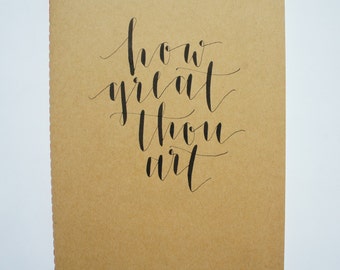 how
great
thou
art